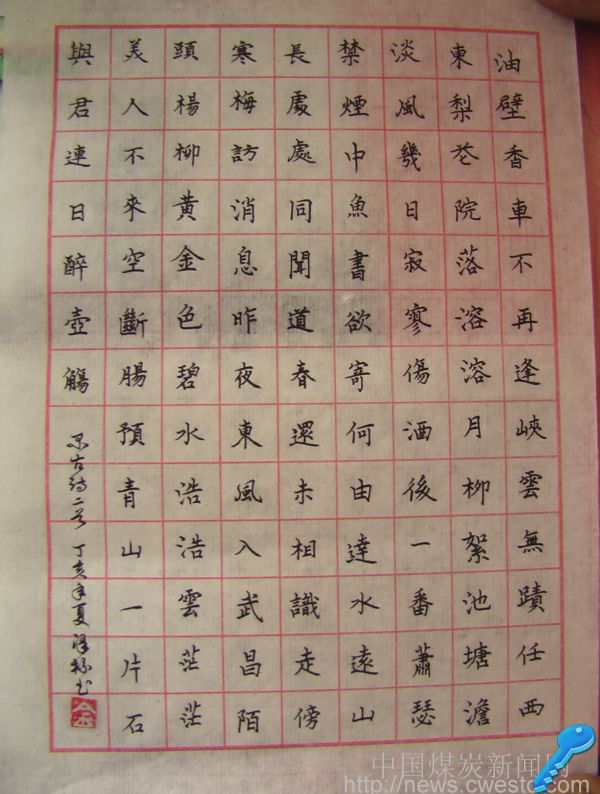 油壁香車不再逢峽雲無蹟任西
東梨花院落溶溶月柳絮池塘澹
淡風幾日寂寥傷酒後一番蕭瑟
禁煙中魚書欲寄何由達水遠山
長處處同聞道春還未相識走傍
寒梅訪消息昨夜東風入武昌陌
頭楊柳黃金色碧水浩浩雲茫茫
美人不來空斷腸預青山一片石
與君連日醉壺觴
录古诗二首 丁亥年夏 书
中国煤炭新闻网
http://news.cwestc.com